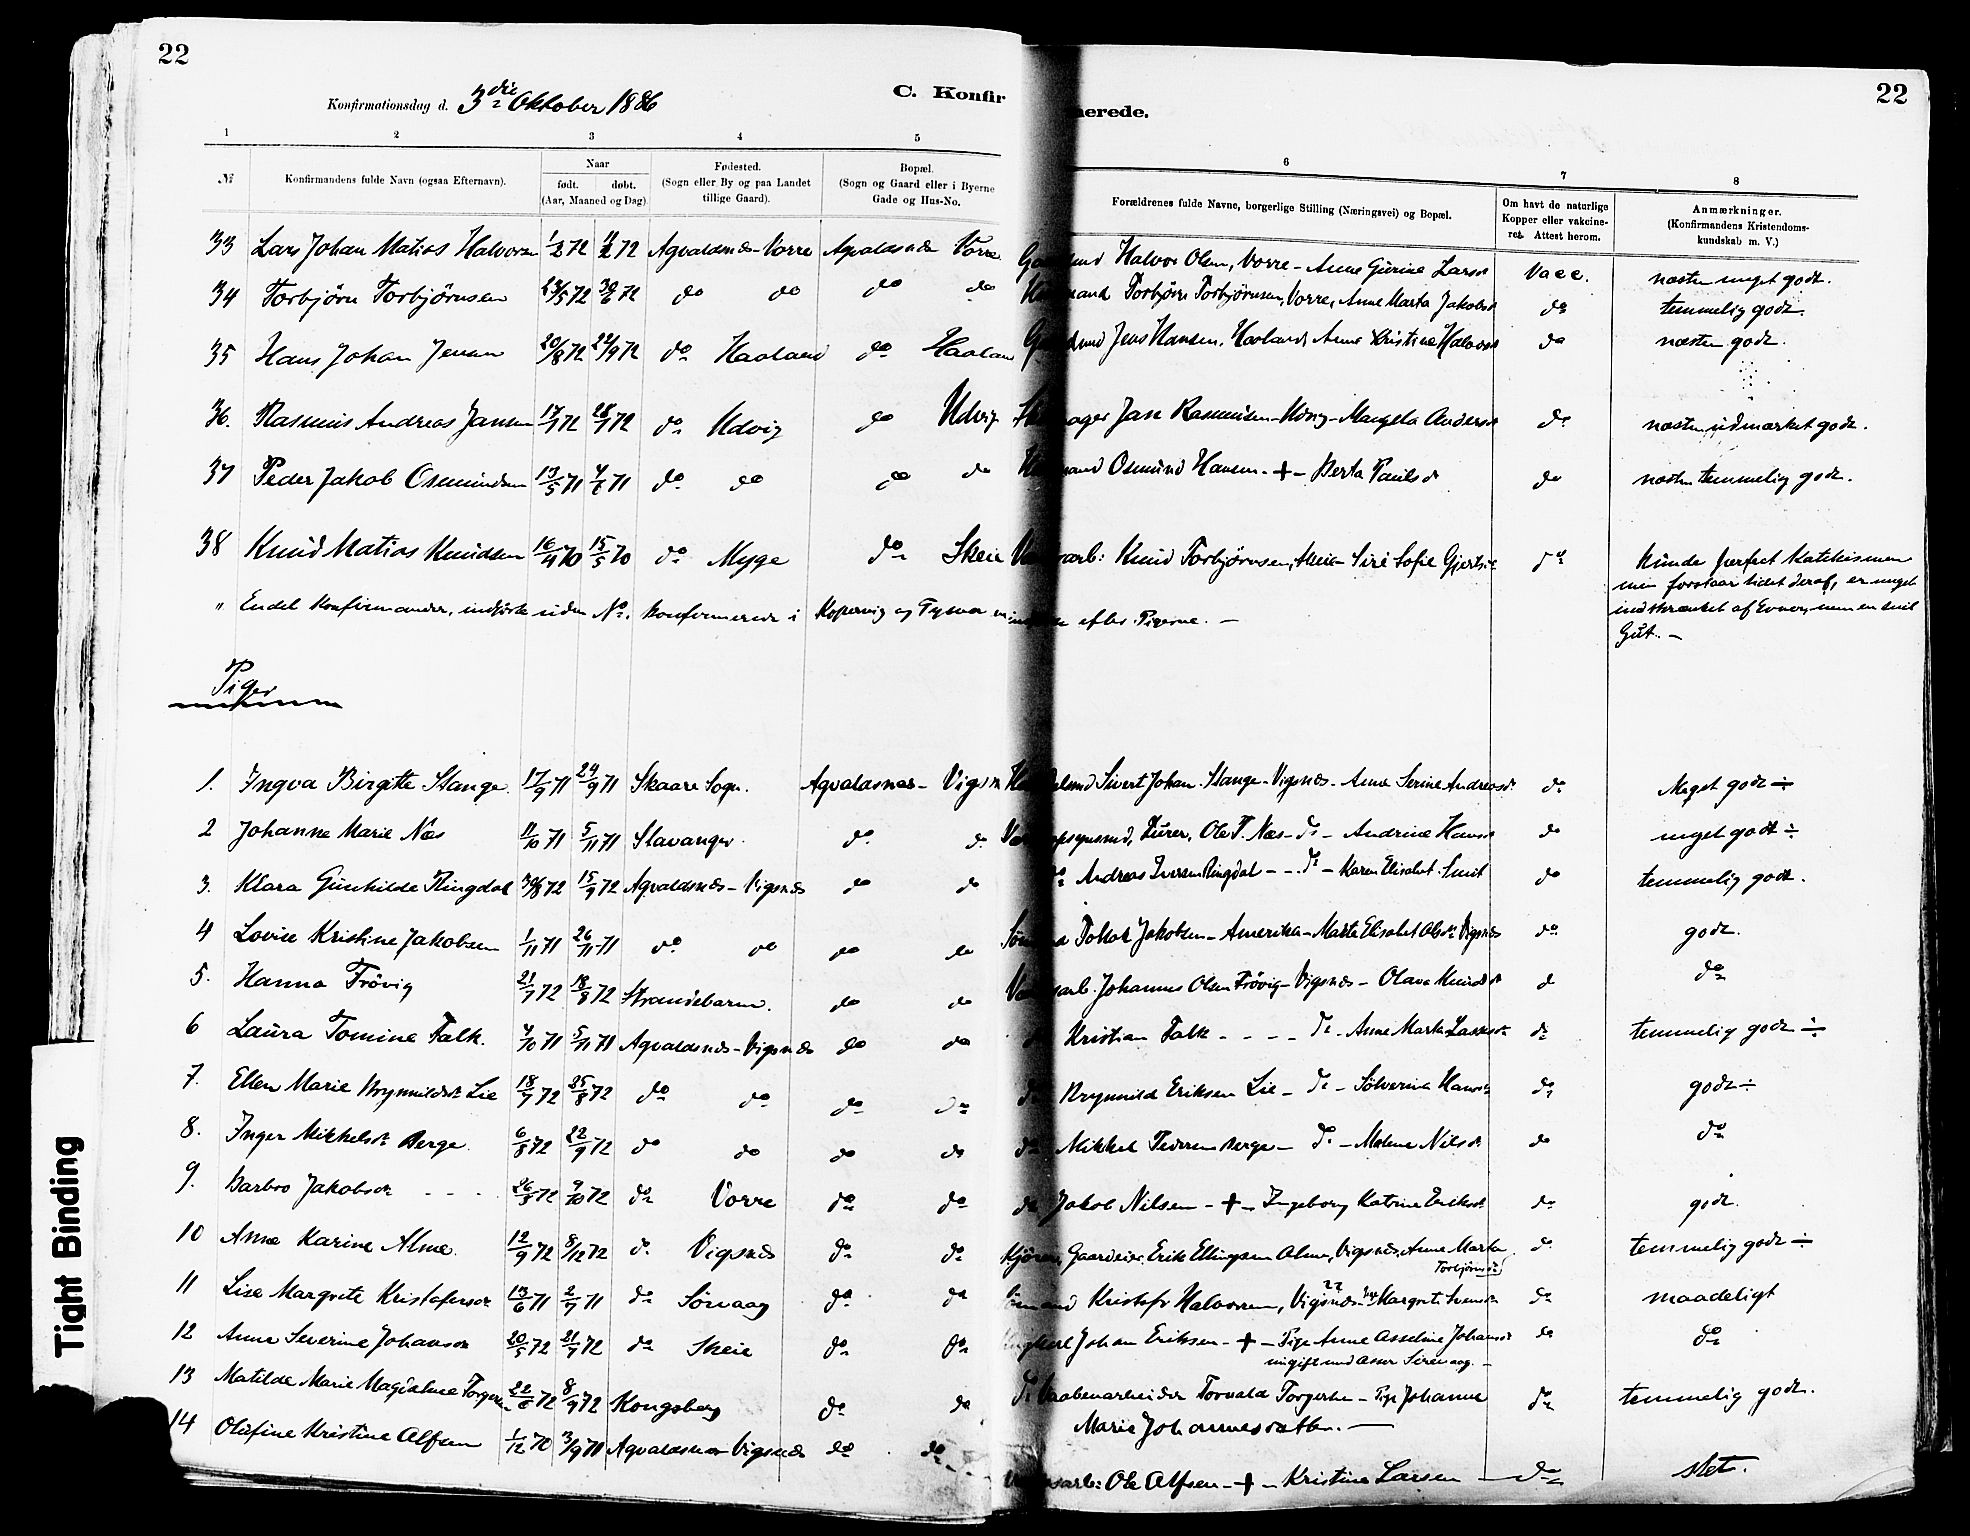 22
22
Konfirmationsdag d. 3die Oktober 1886
C. Konfir
erede.
1 2 3 4 5 6 7 8
№
Konfirmandens fulde Navn (ogsaa Efternavn).
Naar
født. døbt.
(Aar, Maaned og Dag)
Fødested.
(Sogn eller By og paa Landet
tillige Gaard).
Bopæl.
(Sogn og Gaard eller i Byerne
Gade og Hus-No.
Forældrenes fulde Navne, borgerlige Stilling (Næringsvei) og Bopæl.
Om havt de naturlige
Kopper eller vakcine-
ret. Attest herom.
Anmærkninger.
(Konfirmandens Kristendoms-
kundskab m. V.)
33 Lars Johan Matias Halvorsen 72 72 Agvaldsnæs-Vorre Agvaldsnæs Vorre Halvor Olsen, Vorre - Anne Gurine Larsd Vacc. næsten meget godt.
34 Torbjørn Torbjørnsen 23/5 72 30/6 72 do do do do Torbjørn Torbjørnsen, Vorre, Anne Marta Jakobsd do temmelig godt.
35 Hans Johan Jensen 20/8 72 22/9 72 do Haaland do Haaland Jens Hansen, Haaland, Anne Kristine Halvorsd do næsten godt.
36. Rasmus Andreas Jansen 17/7 72 28/7 72 do Udvig do Udvig Jan Rasmussen - Udvig - Margela Andersd do næsten udmærket godt.
37 Peder Jakob Osmundsen 13/5 71 4/6 71 do do do do Osmund Hansen - + - Berta Paulsd do næsten temmelig godt.
38 Knud Matias Knudsen 16/4 70 15/5 70 do Myge do Skeie arb: Knud Torbjørnsen, Skeie - Siri Sofie Gjertsd do Kunde perfect Katekismen
men forstaar lidet deraf, er meget
indskrænket af Evner, men en snil
Gut. -
" Endel Konfirmander, indførte uden No. konfirmerede i Kopervig og Tysvær efter Pigerne. -
Piger
1. Ingva Birgitte Stange 17/9 71 24/9 71 Skaare Sogn. Agvaldsnæs - Vigsn Sivert Johan Stange - Vigsnæs - Anne Serine Andreasd. do Meget godt ÷
2 Johanne Marie Næs 11/10 71 5/11 71 Stavanger. do do Ole T. Næs - do - Andrine Hansd do meget godt ÷
3. Klara Gunhilde Ringdal 30/8 72 15/9 72 Agvaldsnæs - Vigsnæs do do do Andreas Iversen Ringdal - - do - Karen Elisabet Smit do temmelig godt.
4 Lovise Kristine Jakobsen 1/11 71 26/11 71 do do do do Tollak Jakobsen - Amerika - Marta Elisabet Olsd Vigsnæs do godt.
5. Hanna Trøvig 21/7 72 18/8 72 Strandebarm. do do arb. Johannes Olsen Trøvig - Vigsnæs - Olava Knudsd d do
6 Laura Tomine Falk. 4/10 71 5/11 71 Agvaldsnæs - Vigsnæs do do do Kristian Falk - - - - do - Anne Marta Larsd do temmelig godt ÷
7. Ellen Marie Brynnildsd Lie 18/7 72 25/8 72 do do do do do Brynnild Eriksen Lie - do - Sølverine Hansd do godt ÷
8. Inger Mikkelsd Berge. 6/8 72 22/9 72 do do do do do Mikkel Pedersen Berge - do - Malene Nilsd do do
9. Barbro Jakobsd - - - 26/8 72 9/10 72 do Vorre do do do Jakob Nilsen - + - Ingeborg Katrine Eriksd do godt.
10 Anna Karine Alme. 12/9 72 8/12 72 do Vigsnæs do do Gaardeier Erik Ellingsen Alme, Vigsnæs, Anne Marta
Torbjørnsd do temmelig godt ÷
11 Lise Margrete Kristofersd 13/6 71 2/7 71 do Sørvaag do do Kristofer Halvorsen, Vigsnæs - Margrete Svensd do maadeligt
12 Anne Severine Johansd 20/5 72 21/7 72 do Skeie do do Ungkarl Johan Eriksen - + - Pige Anne Asseline Johansd
do do
13 Matilde Marie Magdalene Torgersen 22/6 72 8/9 72 Kongsberg do do do Vaabenarbeider Torvald Torgersen - Pige Johanne
Marie Johannesdatter. - do temmelig godt.
14 Olufine Kristine Alfsen 1/12 70 3/9 71 Agvaldsnæs Vigsnæs do do arb: Ole Alfsen - + - Kristine Larsen - do slet.
Tight Binding